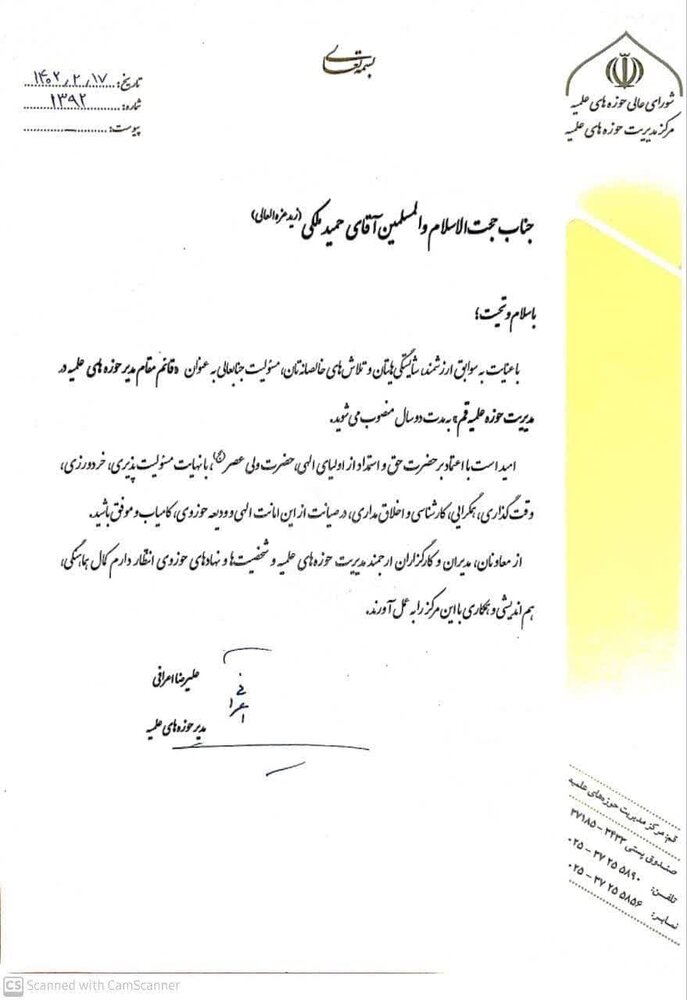 بسمه تعالی
شورای عالی حوزه های علمیه
مرکز مدیریت حوزه های علمیه
تاریخ: ۱۴۰۲٫۲٫۱۷
شماره: ۱۳۹۲
پیوست:
جناب حجت الاسلام والمسلمین آقای حمید ملکی (زید عزه العالی)
باسلام و تحیت؛
با عنایت به سوابق ارزشمند، شایستگی هایتان و تلاش های خالصانه تان، مسئولیت جنابعالی به عنوان «قائم مقام مدیر حوزه های علمیه در
مدیریت حوزه علمیه قم» به مدت دو سال منصوب می شوید.
امید است با اعتماد بر حضرت حق و استمداد از اولیای الهی، حضرت ولی عصر (عج)، با نهایت مسئولیت پذیری، خردورزی،
وقت گذاری، همگرایی، کارشناسی و اخلاق مداری، در صیانت از این امانت الهی و ودیعه حوزوی، کامیاب و موفق باشید.
از معاونان، مدیران و کارگزاران ارجمند مدیریت حوزه های علمیه و شخصیت ها و نهادهای حوزوی انتظار دارم کمال هماهنگی،
هم اندیشی و همکاری با این مرکز را به عمل آورند.
علیرضا اعرافی
مدیر حوزه های علمیه
قم: مرکز مدیریت حوزه‌های علمیه
صندوق پستی ۳۴۳۳ – ۳۷۱۸۵
تلفن: ۳۷۲۵۵۸۹۰ – ۰۲۵
نمابر: ۳۷۲۵۵۸۵۶ – ۰۲۵
CS Scanned with CamScanner